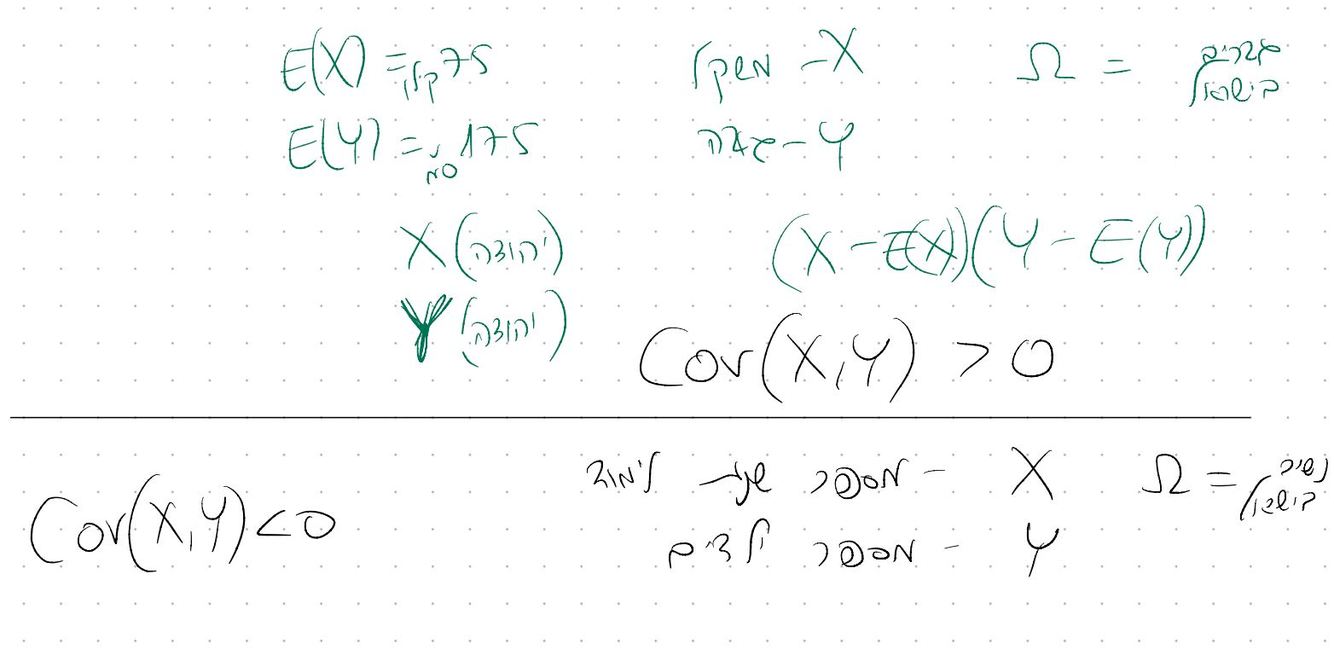 Ω = גברים בישראל
X - משקל
E(X) = 75 קילו
Y - גובה
E(Y) = 175 ס"מ
(X - E(X))(Y - E(Y))
X(יהודה)
Y(יהודה)
Cov(X,Y) > 0
Ω = נשים בישראל
X - מספר שנות לימוד
Y - מספר ילדים
Cov(X,Y) < 0